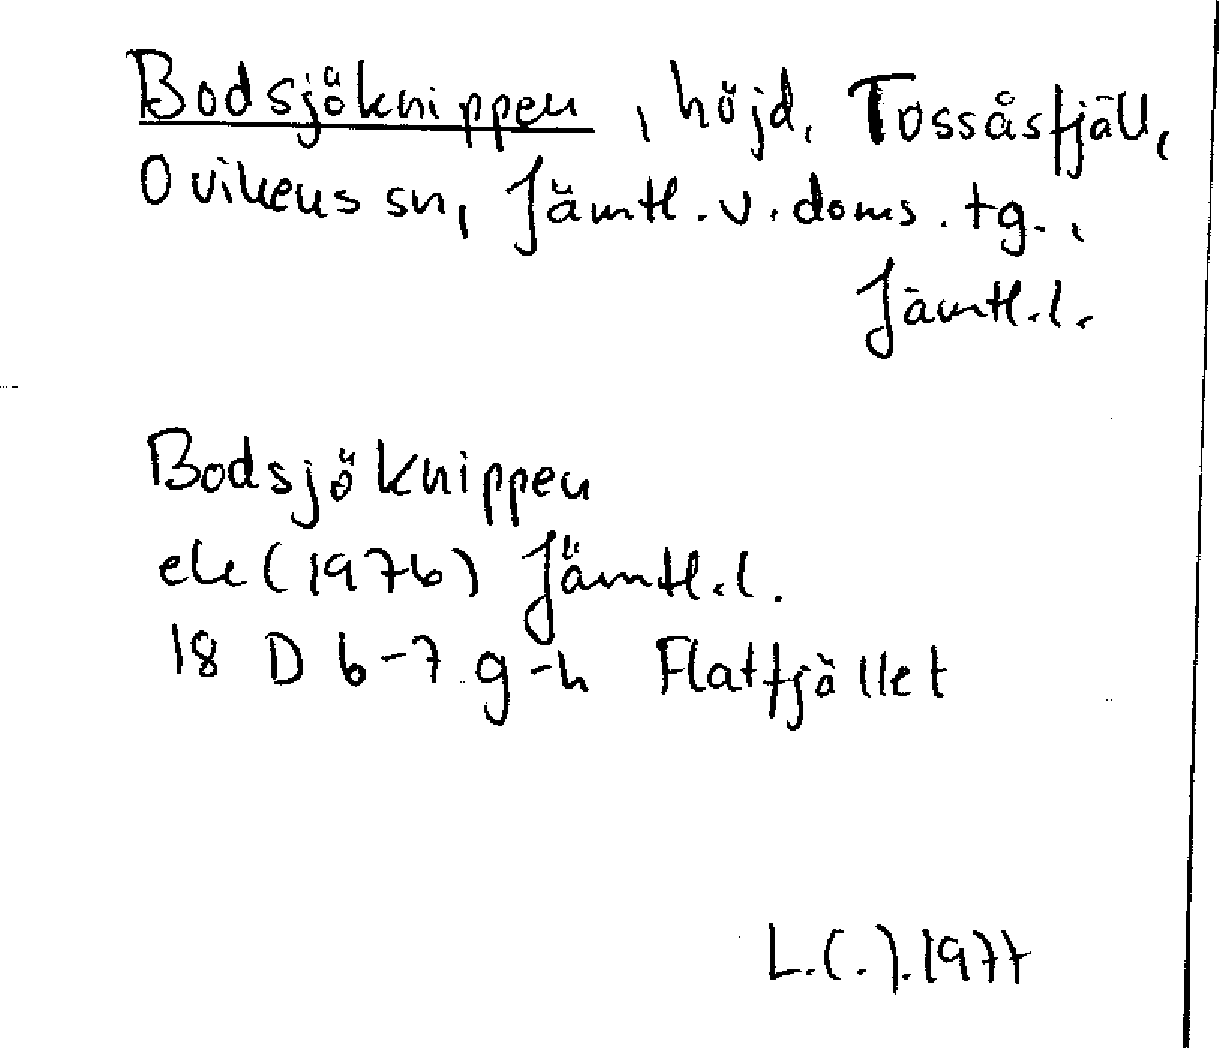 Bodsjöknippen, höjd, Tossåsfjäll,
Ovikens sn, Jämtl. v. doms. tg.,
Jämtl. l.
Bodsjöknippen
ek (1976) Jämtl. l.
18 D 6-7 g-h Flatfjället
L.(.).1977